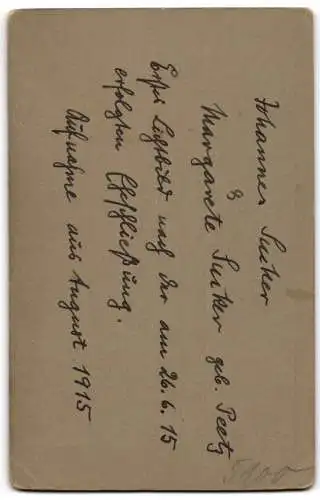 Johannes Suker
&
Margarete Suker geb. Peetz
Erstes Lichtbild nach der am 26.6.15
erfolgten Eheschließung.
Aufnahme aus August 1915